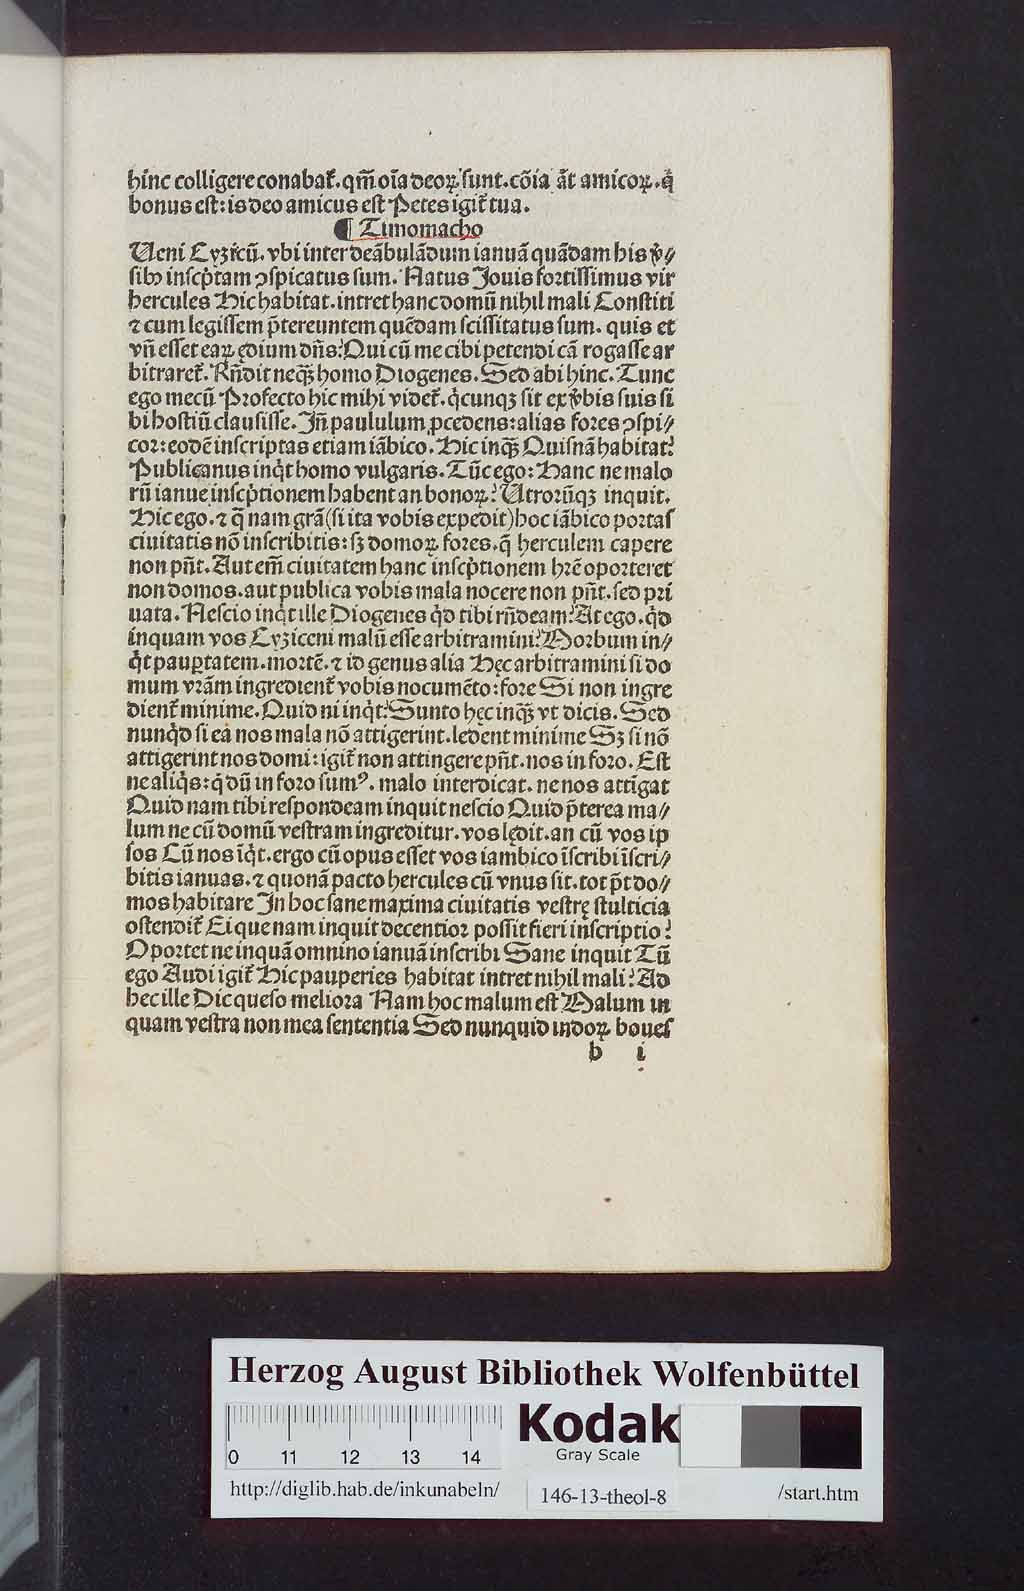 hinc colligere conabat᷑. qm̄ oīa deoꝝ sunt. cōia āt amicoꝝ. q̄
bonus est: is deo amicus est Petes igit᷑ tua.
¶ Timomacho
Ueni Cyzicū. vbi inter deābulādum ianuā quādam his v̓⸗
sibꝰ inscṗtam ɔspicatus sum. Natus Jouis fortissimus vir
hercules Hic habitat. intret hanc domū nihil mali Constiti
⁊ cum legissem p̄tereuntem quēdam scissitatus sum. quis et
vn̄ esset eaꝝ ędium dn̄s? Qui cū me cibi petendi cā rogasse ar
bitraret᷑. Rn̄dit neqꝫ homo Diogenes. Sed abi hinc. Tunc
ego mecū Profecto hic mihi videt᷑. q̇cunqꝫ sit ex v̓bis suis si
bi hostiū clausisse. Jn̄ paululum ꝓcedens: alias fores ɔspi⸗
cor: eodē inscriptas etiam iābico. Hic inqꝫ Quisnā habitat?
Publicanus inq̇t homo vulgaris. Tūc ego: Hanc ne malo
rū ianue inscṗtionem habent an bonoꝝ? Utrorūqꝫ inquit.
Hic ego. ⁊ q̄ nam grā (si ita vobis expedit) hoc iābico portas
ciuitatis nō inscribitis: sꝫ domoꝝ fores. q̄ herculem capere
non pn̄t. Aut em̄ ciuitatem hanc inscṗtionem hr̄e oporteret
non domos. aut publica vobis mala nocere non pn̄t. sed pri
uata. Nescio inq̇t ille Diogenes q̇d tibi rn̄deam? At ego. q̇d
inquam vos Cyziceni malū esse arbitramini? Morbum in⸗
q̇t paupꝑtatem. mortē. ⁊ id genus alia Hęc arbitramini si do
mum vr̄am ingredient᷑ vobis nocumēto: fore Si non ingre
dient᷑ minime. Quid ni inq̇t? Sunto hęc inqꝫ vt dicis. Sed
nunq̇d si ea nos mala nō attigerint. ledent minime Sꝫ si nō
attigerint nos domi: igit᷑ non attingere pn̄t. nos in foro. Est
ne aliq̇s: q̇ dū in foro sumꝰ. malo interdicat. ne nos attīgat
Quid nam tibi respondeam inquit nescio Quid p̄terea ma⸗
lum ne cū domū vestram ingreditur. vos lędit. an cū vos ip
sos Cū nos īq̇t. ergo cū opus esset vos iambico īscribi īscri⸗
bitis ianuas. ⁊ quonā pacto hercules cū vnus sit. tot p̄t do⸗
mos habitare In hoc sane maxima ciuitatis vestrę stulticia
ostendit᷑ Ei que nam inquit decentior possit fieri inscriptio?
Oportet ne inquā omnino ianuā inscribi Sane inquit Tū
ego Audi igit᷑ Hic pauperies habitat intret nihil mali? Ad
hec ille Dic queso meliora Nam hoc malum est Malum in
quam vestra non mea sententia Sed nunquid indoꝝ boues
b i
Herzog August Bibliothek Wolfenbüttel
0 11 12 13 14
Kodak
Gray Scale
http://diglib.hab.de/inkunabeln/ 146-13-theol-8 /start.htm